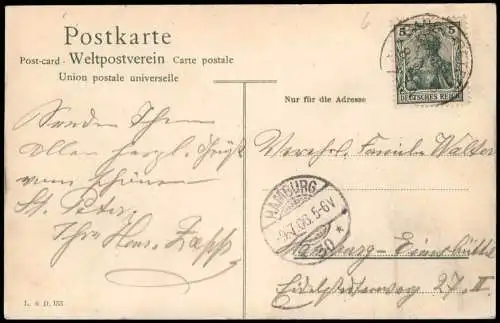 Postkarte
Post-card - Weltpostverein - Carte postale
Union postale universelle
Nur für die Adresse
5 5
DEUTSCHES REICH
Senden Ihnen
Allen herzl. Grüße
vom schönen
St. Peter,
Ihr Hans Zapp
Verehrl. Familie Walter
HAMBURG
7.06. 5-6V
*
Hamburg-Eimsbüttel
27. II
L. & P. 153